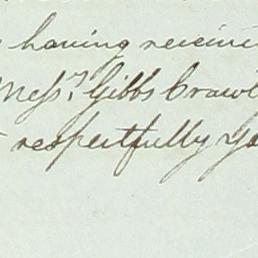 having receiv
Messrs Gibbs Crawl
respectfully yo